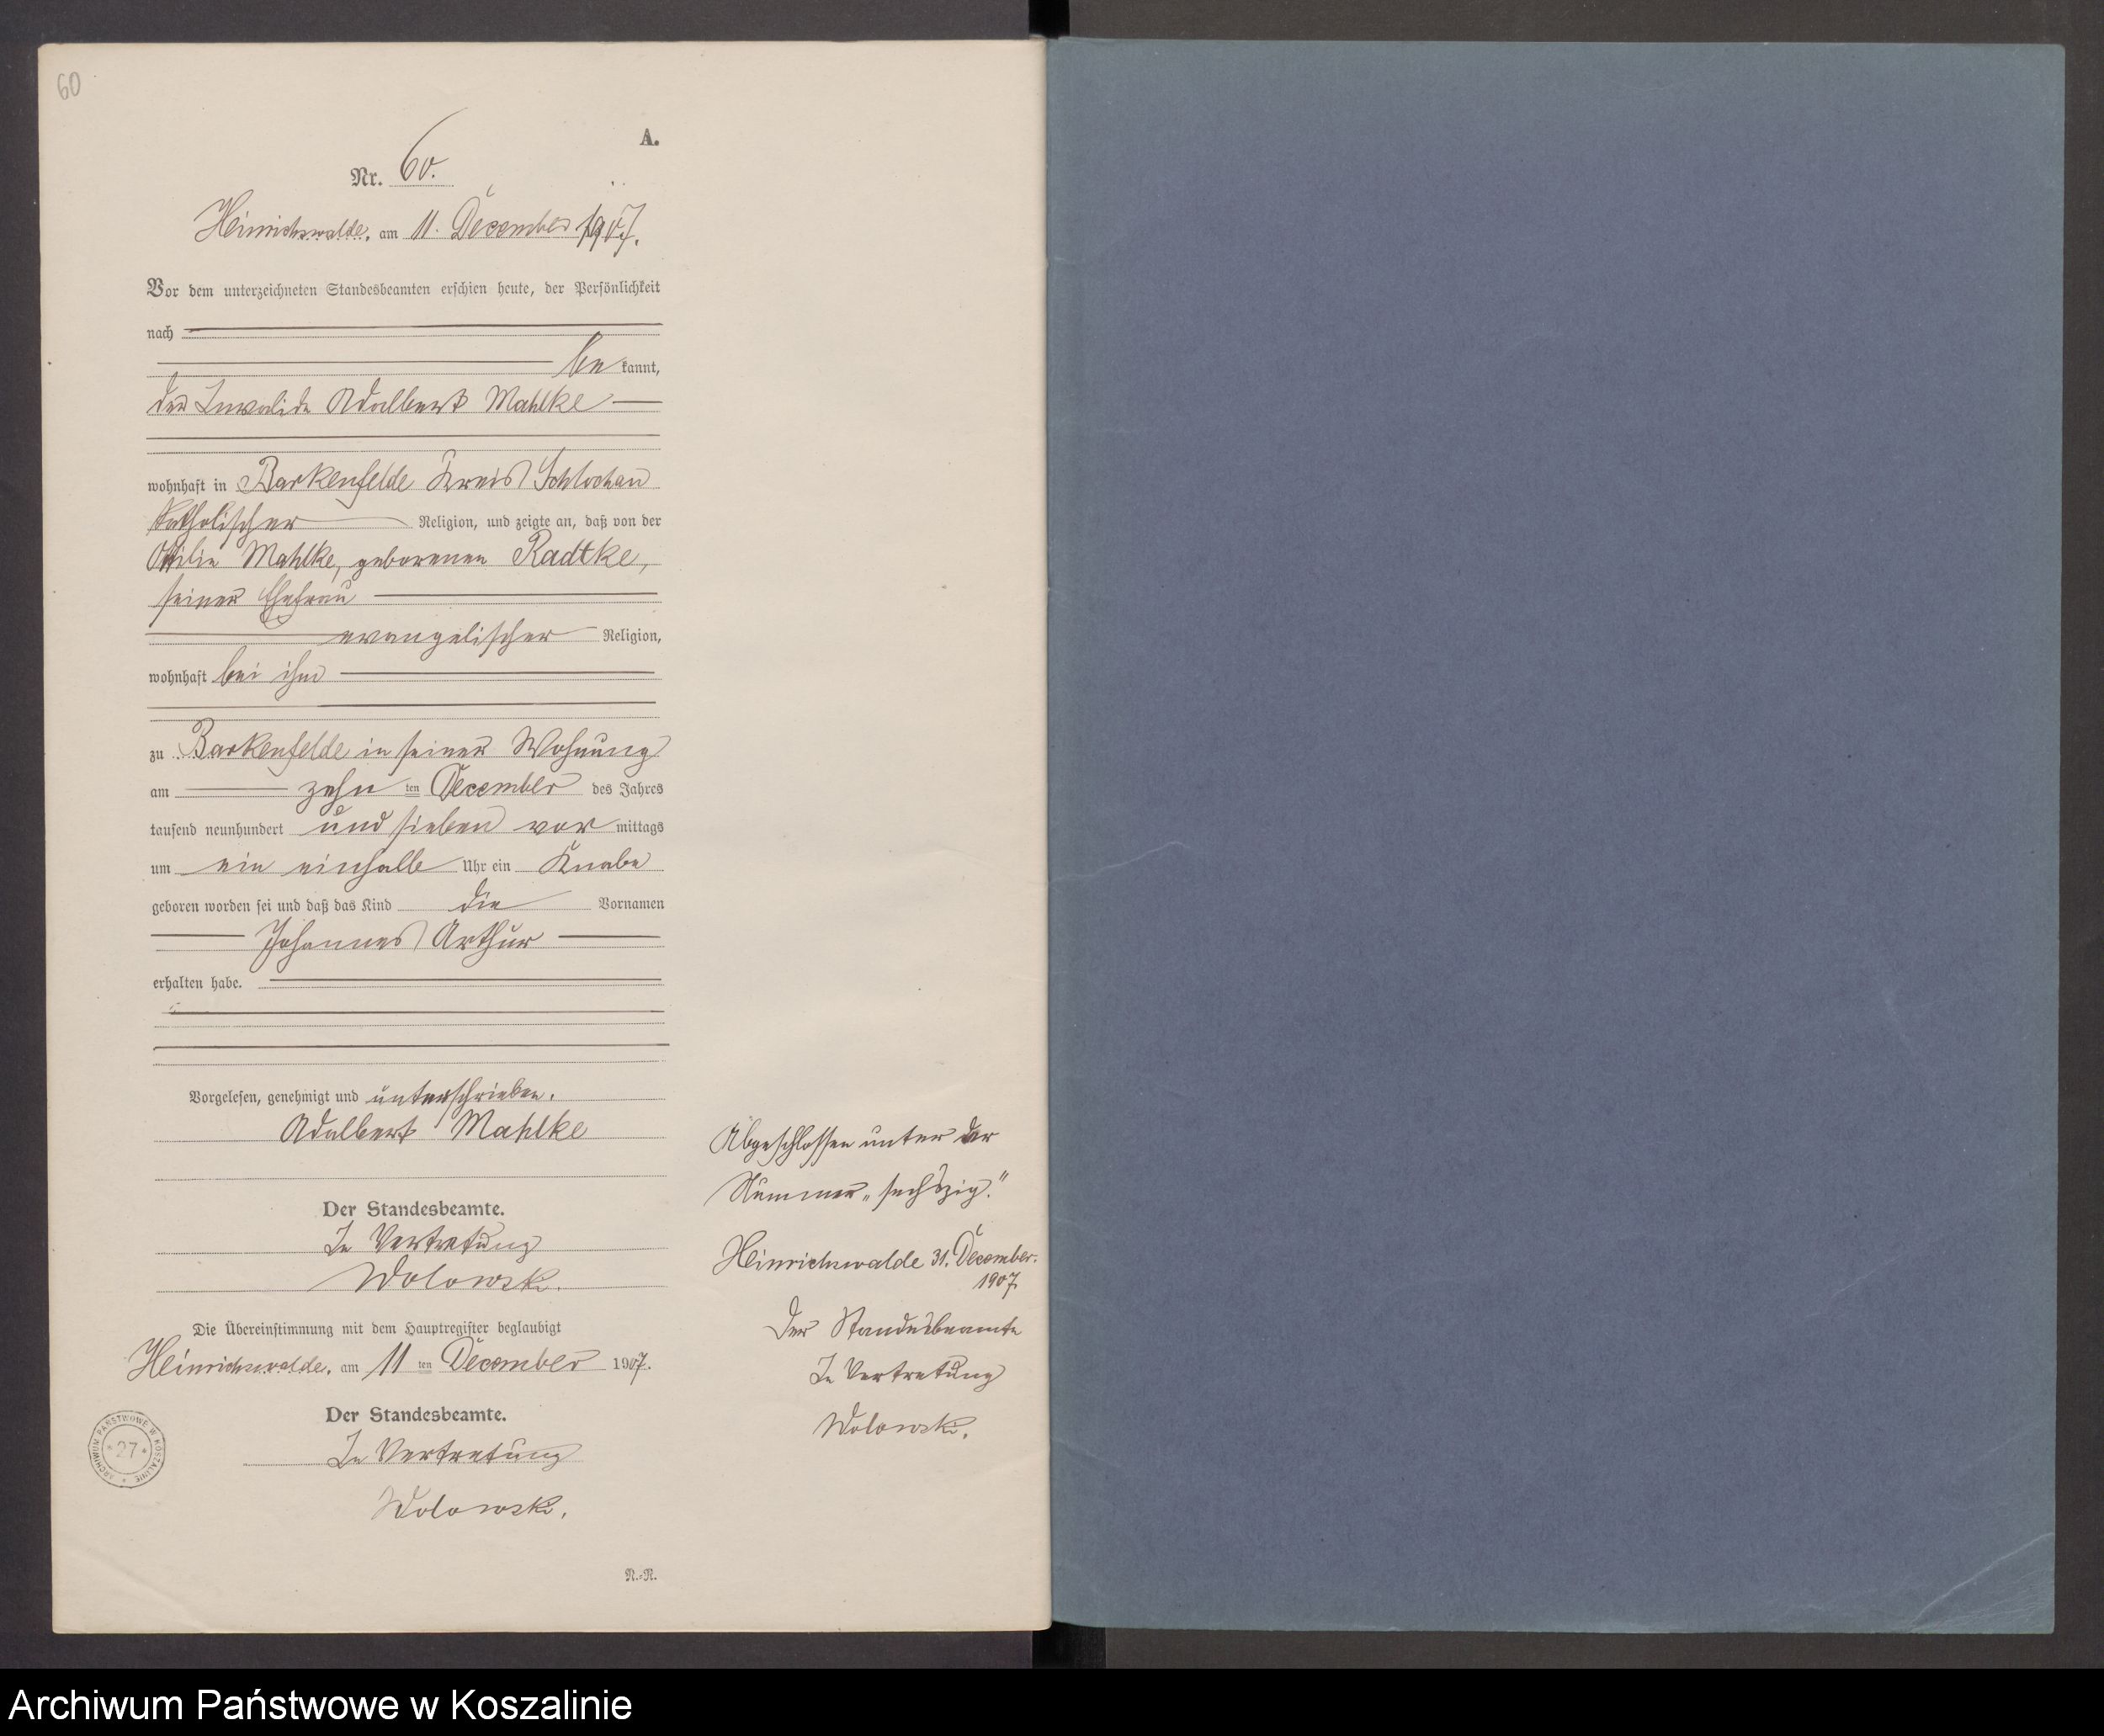 60
A.
Nr. 60.
Heinrichswalde, am 11. December 1907.
Vor dem unterzeichneten Standesbeamten erschien heute, der Persönlichkeit
nach
be kannt,
der Invalide Adalbert Mahlke
wohnhaft in Barkenfelde Kreis Schlochau
katholischer Religion, und zeigte an, daß von der
Ottilie Mahlke, geborenen Radtke,
seiner Ehefrau
evangelischer Religion,
wohnhaft bei ihm
zu Barkenfelde in seiner Wohnung
am zehn ten December des Jahres
tausend neunhundert und sieben vor mittags
um ein einhalb Uhr ein Knabe
geboren worden sei und daß das Kind die Vornamen
Johannes Arthur
erhalten habe.
Vorgelesen, genehmigt und unterschrieben.
Adalbert Mahlke
Der Standesbeamte.
In Vertretung
Wolowski.
Die Übereinstimmung mit dem Hauptregister beglaubigt
Heinrichswalde, am 11 ten December 1907.
Der Standesbeamte.
In Vertretung
Wolowski.
N.-R.
Abgeschlossen unter der
Nummer „sechszig."
Heinrichswalde 31. December.
1907.
Der Standesbeamte
In Vertretung
Wolowski.
ARCHIWUM PAŃSTWOWE W KOSZALINIE
* 27 *
Archiwum Państwowe w Koszalinie